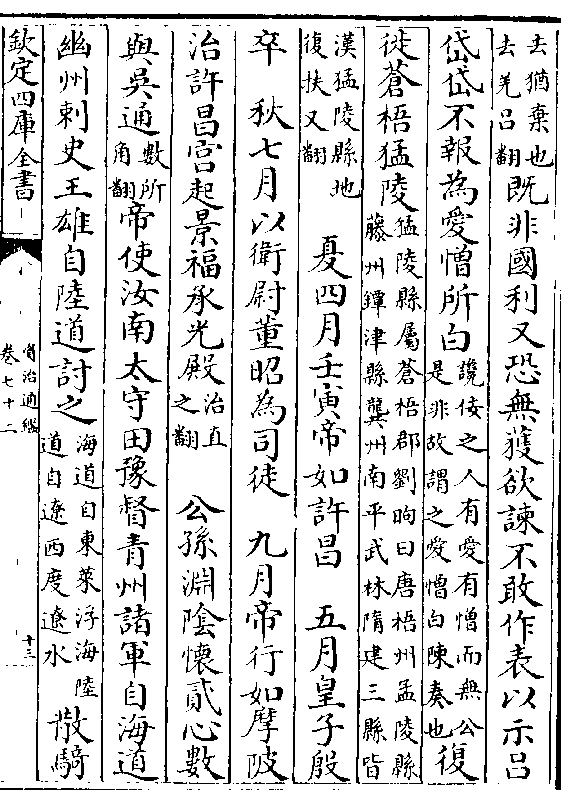 去猶棄也
去羌吕翻
既非國利又恐無獲欲諫不敢作表以示吕
岱岱不報為愛憎所白
讒佞之人有愛有憎而無公
是非故謂之愛憎白陳奏也
復
徙蒼梧猛陵
猛陵縣屬蒼梧郡劉昫曰唐梧州孟陵縣
藤州鐔津縣龔州南平武林隋建三縣皆
漢猛陵縣地
復扶又翻
夏四月壬寅帝如許昌 五月皇子殷
卒 秋七月以衛尉董昭為司徒 九月帝行如摩陂
治許昌宫起景福承光殿
治直
之翻
公孫淵陰懷貳心數
與吳通
數所
角翻
帝使汝南太守田豫督青州諸軍自海道
幽州刺史王雄自陸道討之
海道自東萊浮海陸
道自遼西度遼水
散騎
欽定四庫全書
資治通鑑
卷七十二
十三